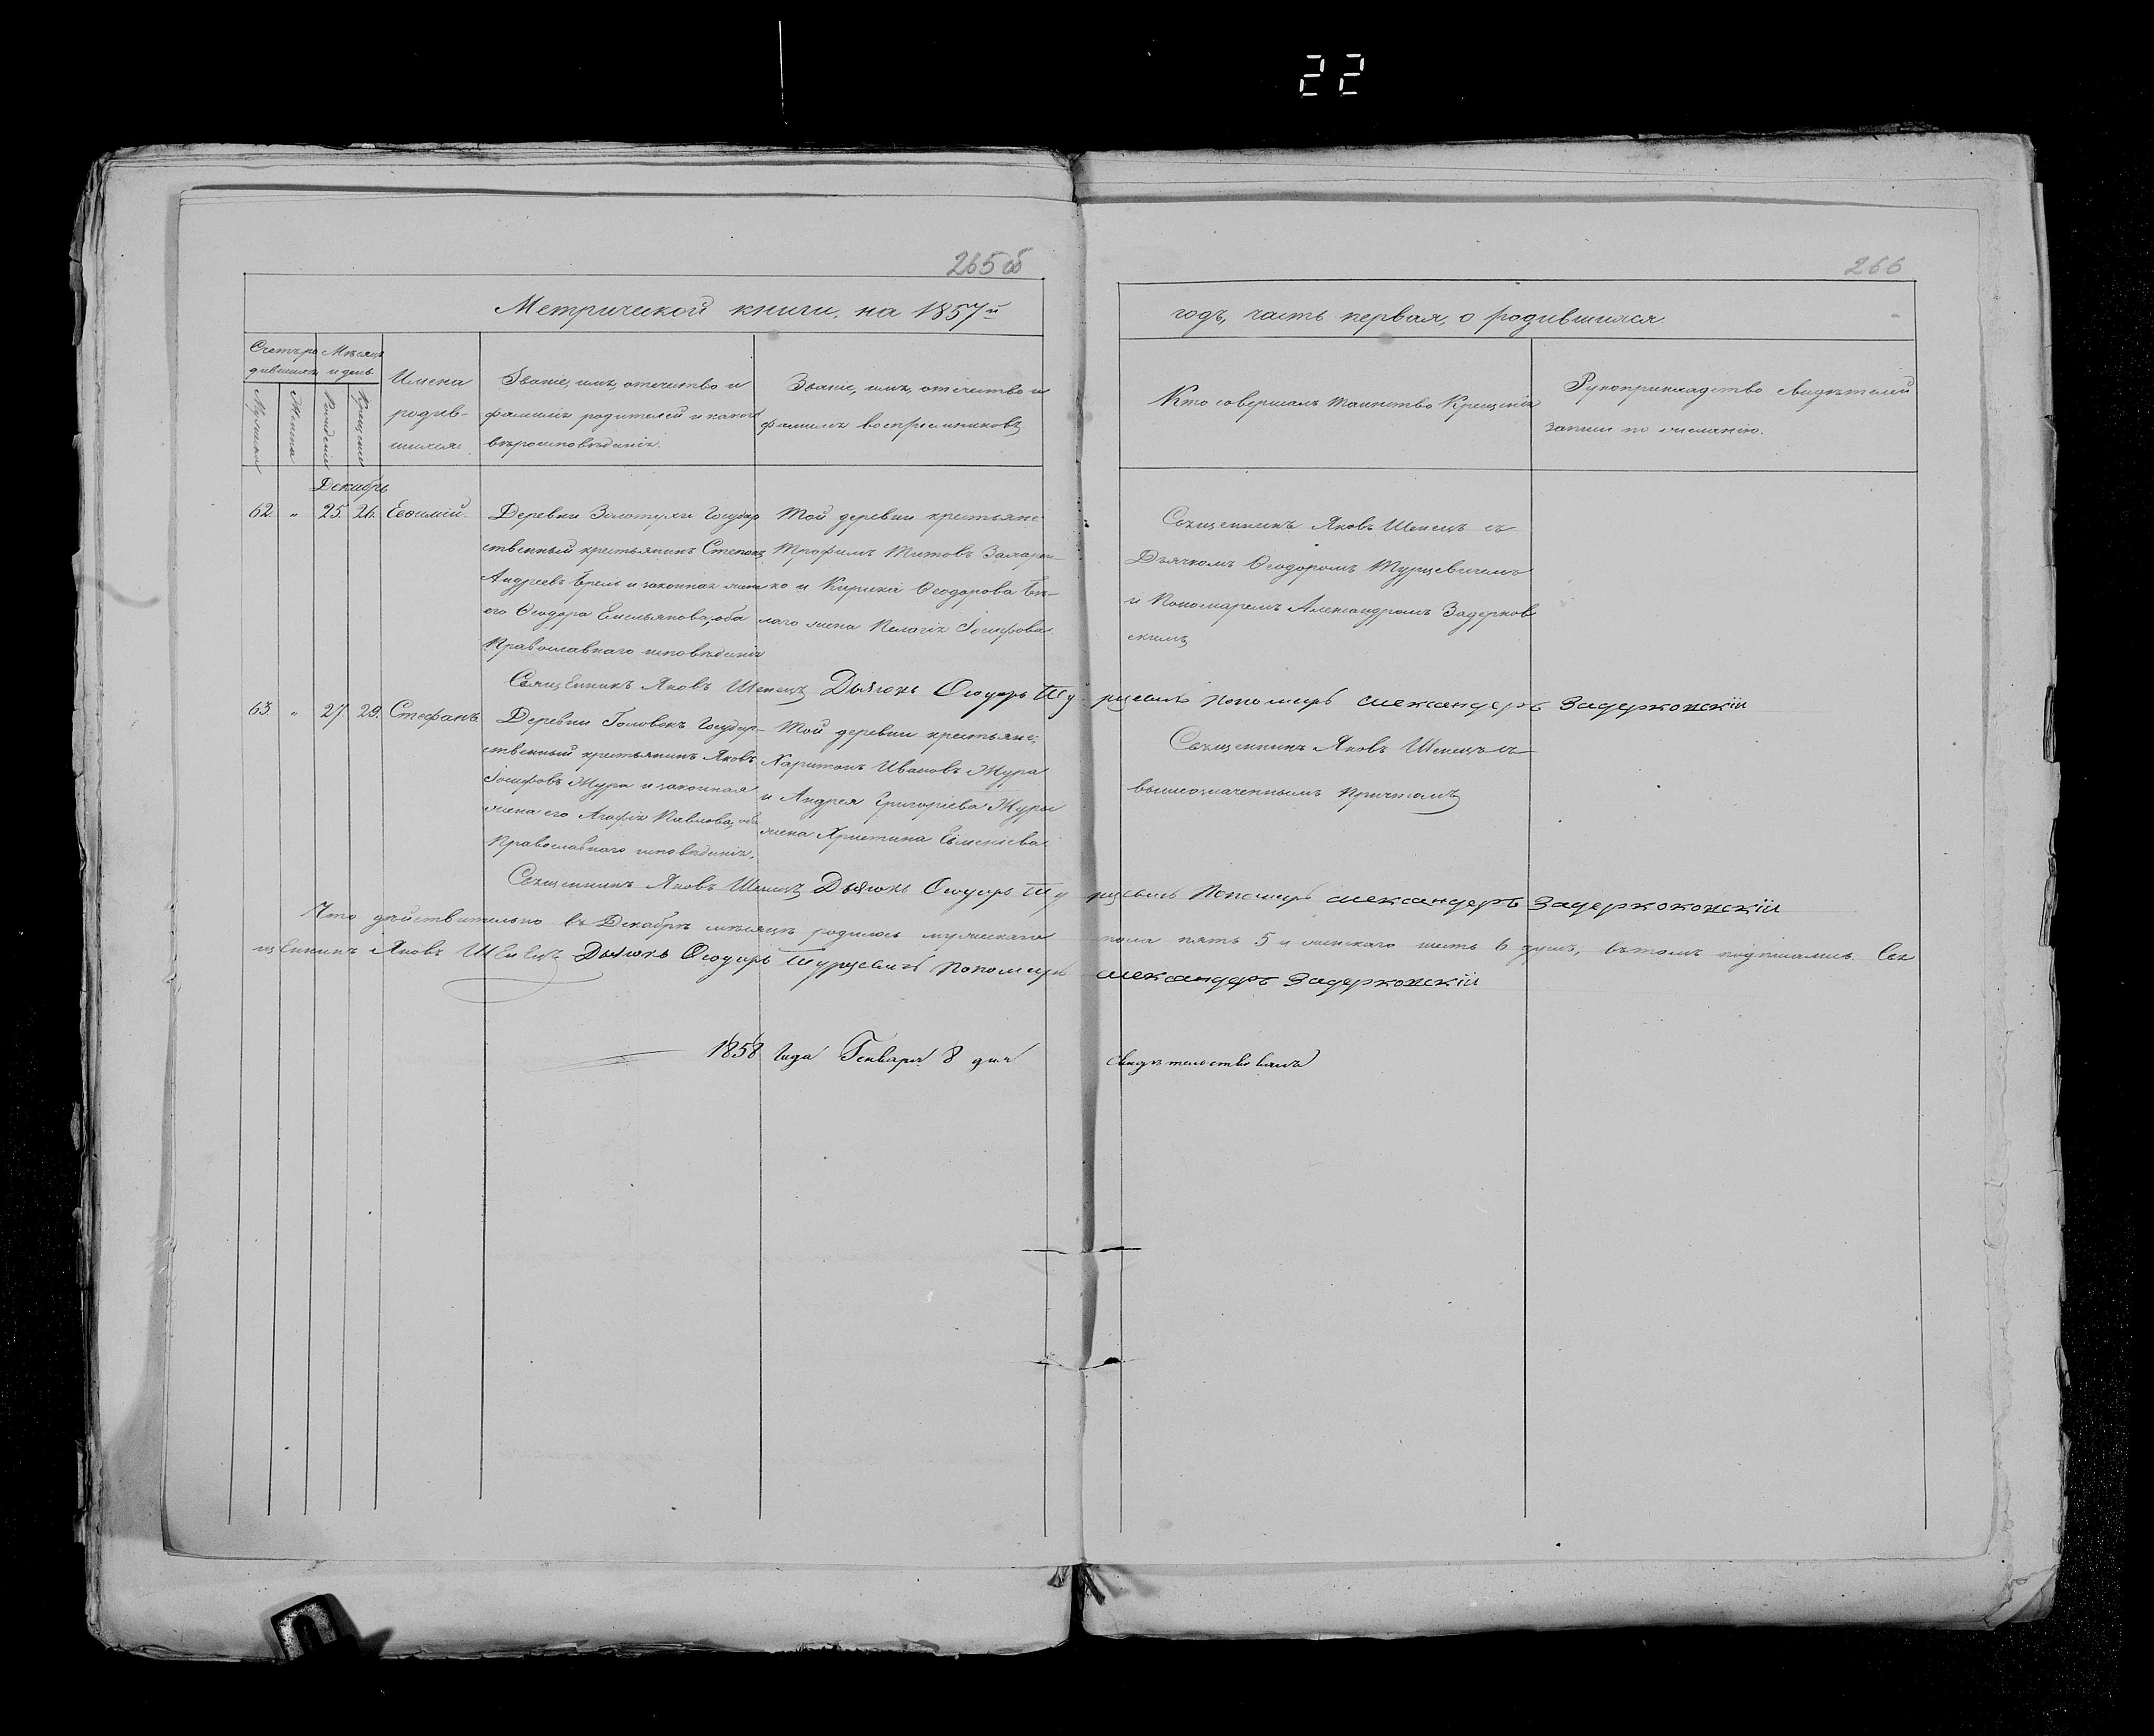 22
265об
266
Метрической книги, на 1857й
годъ, часть первая, о родившихся
Счетъ родившихся
Мѣсяцъ и день
Мужеска
Женска
Рожденія
Крещенія
Имена
родив-
шихся.
Званіе, имя, отчество и
фамилія родителей и какого
вѣроисповѣданія.
Званіе, имя, отчество и
фамилія воспріемниковъ
Кто совершалъ таинство Крещенія
Рукоприкладство свидѣтелей
записи по желанію.
Декабрь
62. „ 25. 26. Евѳимій.
Деревни Золотухи Государ
ственный крестьянинъ Степанъ
Андреевъ и законная жена
его Ѳеодора Емельянова, оба
Православнаго исповѣданія
Той деревни крестьяне:
Трофимъ Титовъ
ко и Кирика Ѳеодорова Бѣ-
лаго жена Пелагія Іосифова
Священникъ Яковъ Шепецъ съ
Дьячкомъ Ѳеодоромъ Турцевичемъ
и Пономаремъ Александромъ Задерков
скимъ
Священникъ Яковъ Шепецъ Дьячокъ Ѳеодоръ Турцевичъ Пономарь Александеръ Задерковскій
63. „ 27. 29. Стефанъ.
Деревни Головокъ Государ-
ственный крестьянинъ Яковъ
Іосифовъ Жура и законная
жена его Агафія Павлова, оба
Православнаго исповѣданія.
Той деревни крестьяне:
Харитонъ Ивановъ Жура
и Андрея Григоріева Журы
жена Христина
Священникъ Яковъ Шепецъ съ
вышеозначеннымъ причтомъ
Священникъ Яковъ Шепецъ Дьячокъ Ѳеодоръ Турцевичъ Пономарь Александеръ Задеркоконскій
Что дѣйствительно въ Декабрѣ мѣсяцѣ родилось мужескаго пола пять 5 и женскаго шесть 6 душъ, въ томъ подписались Свя
щенникъ Яковъ Шепецъ Дьячокъ Ѳеодоръ Турцевичъ Пономарь Александеръ Задерковскій
1858 года Генваря 8 дня свидѣтельствовалъ